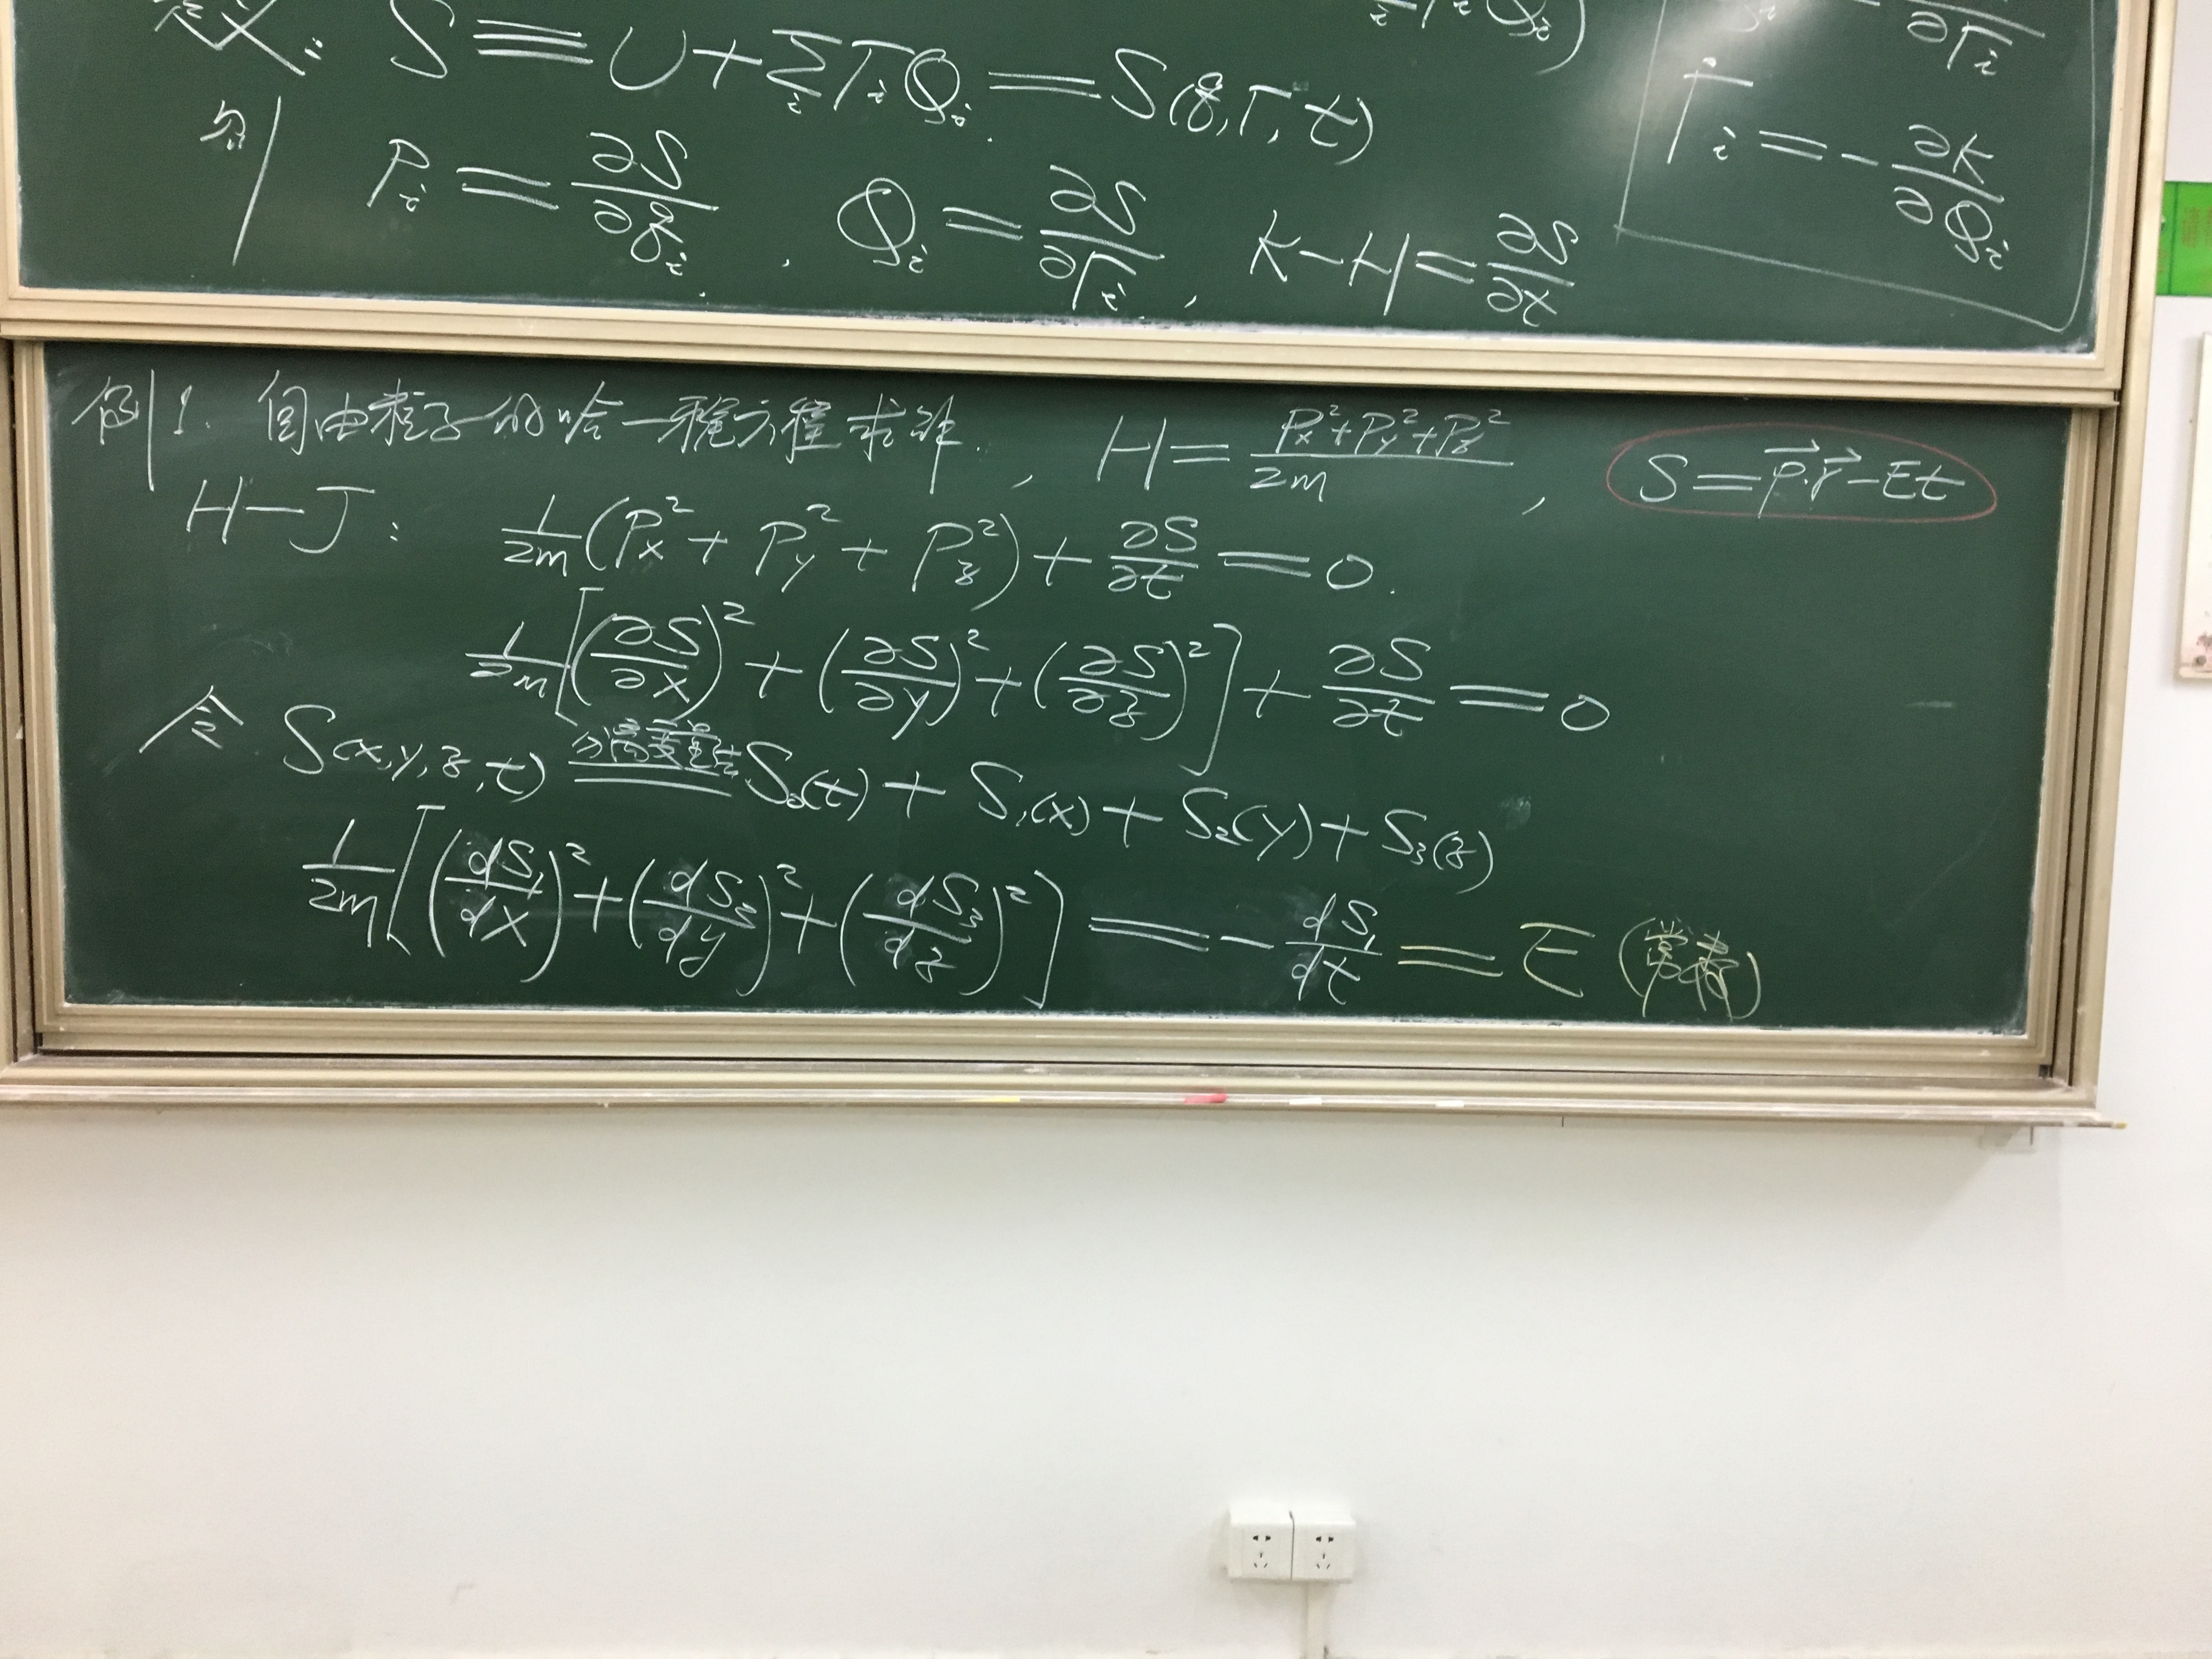 定义: S ≡ U + Σ_i Γ_i Q_i = S(q, Γ, t)
则 P_i = ∂S/∂q_i , Q_i = ∂S/∂Γ_i , K-H = ∂S/∂t
Γ̇_i = - ∂K/∂Q_i
例1. 自由粒子的哈-雅方程求解. , H = (P_x²+P_y²+P_z²)/2m , S = p⃗·r⃗ - Et
H-J: 1/2m (P_x² + P_y² + P_z²) + ∂S/∂t = 0.
1/2m [(∂S/∂x)² + (∂S/∂y)² + (∂S/∂z)²] + ∂S/∂t = 0
令 S(x,y,z,t) 分离变量法 = S_0(t) + S_1(x) + S_2(y) + S_3(z)
1/2m [(dS_1/dx)² + (dS_2/dy)² + (dS_3/dz)²] = - dS_1/dt = E (常数)